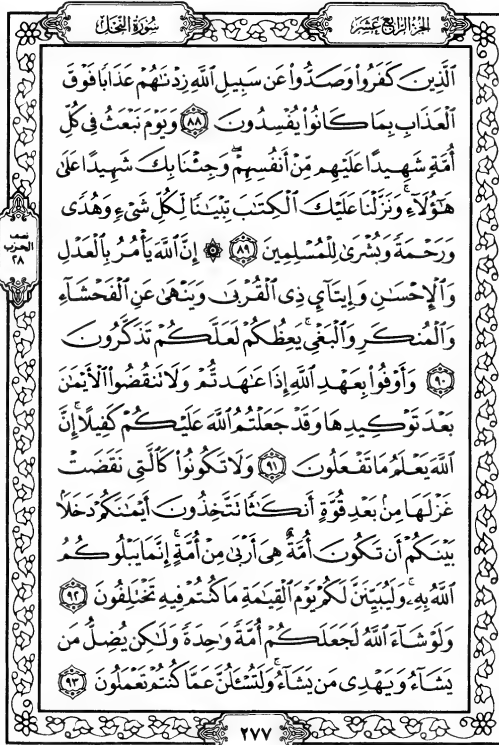 الجزء الرابع عشر
سورة النحل
الَّذِينَ كَفَرُوا۟ وَصَدُّوا۟ عَن سَبِيلِ اللَّهِ زِدْنَـٰهُمْ عَذَابًا فَوْقَ
الْعَذَابِ بِمَا كَانُوا۟ يُفْسِدُونَ ٨٨ وَيَوْمَ نَبْعَثُ فِى كُلِّ
أُمَّةٍ شَهِيدًا عَلَيْهِم مِّنْ أَنفُسِهِمْ ۖ وَجِئْنَا بِكَ شَهِيدًا عَلَىٰ
هَـٰٓؤُلَآءِ ۚ وَنَزَّلْنَا عَلَيْكَ الْكِتَـٰبَ تِبْيَـٰنًا لِّكُلِّ شَىْءٍ وَهُدًى
وَرَحْمَةً وَبُشْرَىٰ لِلْمُسْلِمِينَ ٨٩ ۞ إِنَّ اللَّهَ يَأْمُرُ بِالْعَدْلِ
وَالْإِحْسَـٰنِ وَإِيتَآئِ ذِى الْقُرْبَىٰ وَيَنْهَىٰ عَنِ الْفَحْشَآءِ
وَالْمُنكَرِ وَالْبَغْىِ ۚ يَعِظُكُمْ لَعَلَّكُمْ تَذَكَّرُونَ
٩٠ وَأَوْفُوا۟ بِعَهْدِ اللَّهِ إِذَا عَـٰهَدتُّمْ وَلَا تَنقُضُوا۟ الْأَيْمَـٰنَ
بَعْدَ تَوْكِيدِهَا وَقَدْ جَعَلْتُمُ اللَّهَ عَلَيْكُمْ كَفِيلًا ۚ إِنَّ
اللَّهَ يَعْلَمُ مَا تَفْعَلُونَ ٩١ وَلَا تَكُونُوا۟ كَالَّتِى نَقَضَتْ
غَزْلَهَا مِنۢ بَعْدِ قُوَّةٍ أَنكَـٰثًا تَتَّخِذُونَ أَيْمَـٰنَكُمْ دَخَلًۢا
بَيْنَكُمْ أَن تَكُونَ أُمَّةٌ هِىَ أَرْبَىٰ مِنْ أُمَّةٍ ۚ إِنَّمَا يَبْلُوكُمُ
اللَّهُ بِهِۦ ۚ وَلَيُبَيِّنَنَّ لَكُمْ يَوْمَ الْقِيَـٰمَةِ مَا كُنتُمْ فِيهِ تَخْتَلِفُونَ ٩٢
وَلَوْ شَآءَ اللَّهُ لَجَعَلَكُمْ أُمَّةً وَٰحِدَةً وَلَـٰكِن يُضِلُّ مَن
يَشَآءُ وَيَهْدِى مَن يَشَآءُ ۚ وَلَتُسْـَٔلُنَّ عَمَّا كُنتُمْ تَعْمَلُونَ ٩٣
نصف
الحزب
٢٨
٢٧٧